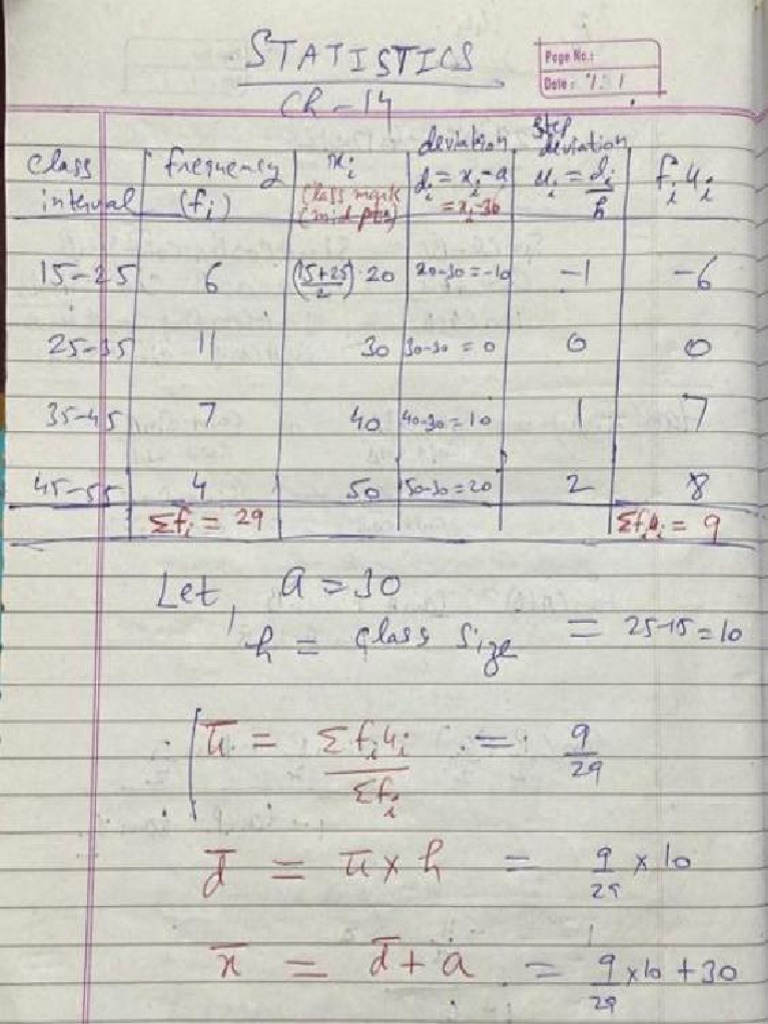 STATISTICS
Page No.:
Date:
Ch-14
class interval | frequency (fi) | xi (class mark (mid pts) | deviation di = xi-a = xi-30 | step deviation ui = di/h | fi ui
15-25 | 6 | (15+25/2) 20 | 20-30 = -10 | -1 | -6
25-35 | 11 | 30 | 30-30 = 0 | 0 | 0
35-45 | 7 | 40 | 40-30 = 10 | 1 | 7
45-55 | 4 | 50 | 50-30 = 20 | 2 | 8
Σfi = 29 | Σfiui = 9
Let, a = 30
h = class size = 25-15 = 10
ū = Σfiui / Σfi = 9/29
d̄ = ū x h = 9/29 x 10
x̄ = d̄ + a = 9/29 x 10 + 30